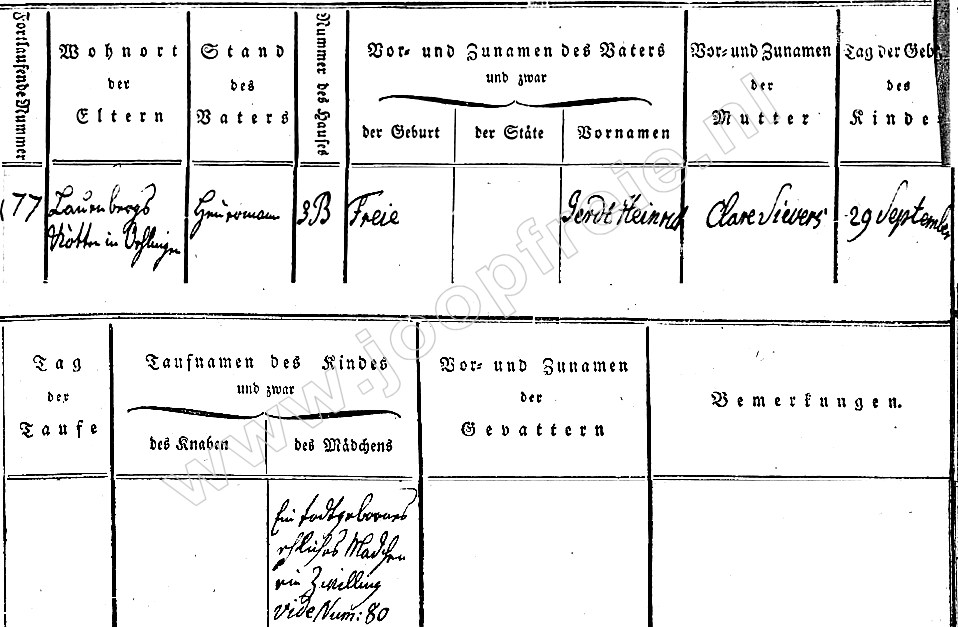 Fortlaufende Nummer
Wohnort
der
Eltern
Stand
des
Vaters
Nummer des Hauses
Vor- und Zunamen des Vaters
und zwar
der Geburt
der Stäte
Vornamen
Vor- und Zunamen
der
Mutter
Tag der Geb
des
Kinde
77
Laurenbergs
Kötten in
Heuermann
3B
Freie
Gerdt Heinrich
Clare Sievers
29 September
Tag
der
Taufe
Taufnamen des Kindes
und zwar
des Knaben
des Mädchens
Vor- und Zunamen
der
Gevattern
Bemerkungen.
Ein todtgebornes
ehliches Mädchen
ein Zwilling
vide Num: 80
www.joopfreie.nl